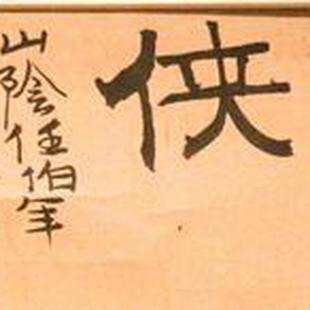 侠
山陰任伯年